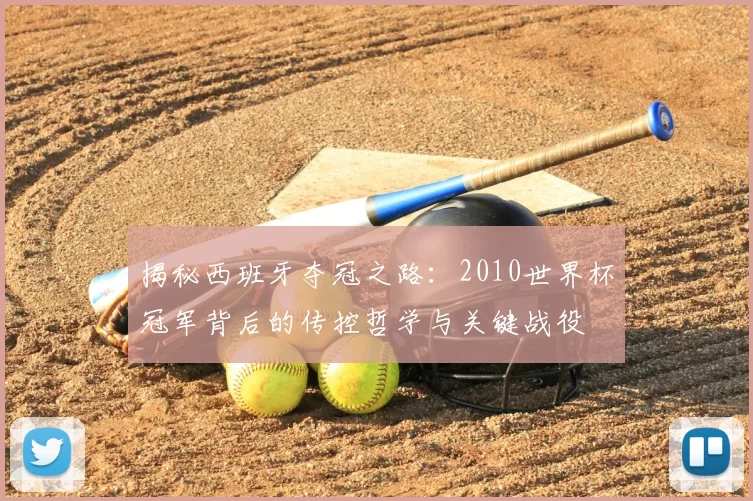 揭秘西班牙夺冠之路：2010世界杯
冠军背后的传控哲学与关键战役